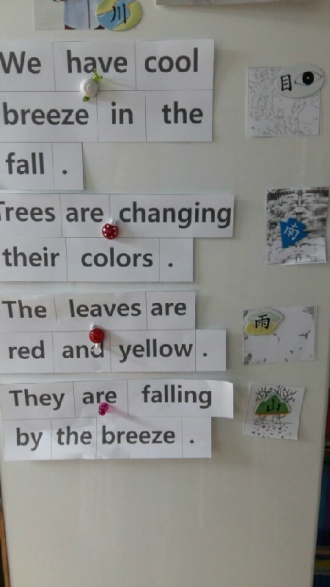 川
We have cool
breeze in the
fall .
Trees are changing
their colors .
The leaves are
red and yellow .
They are falling
by the breeze .
目
雨
山